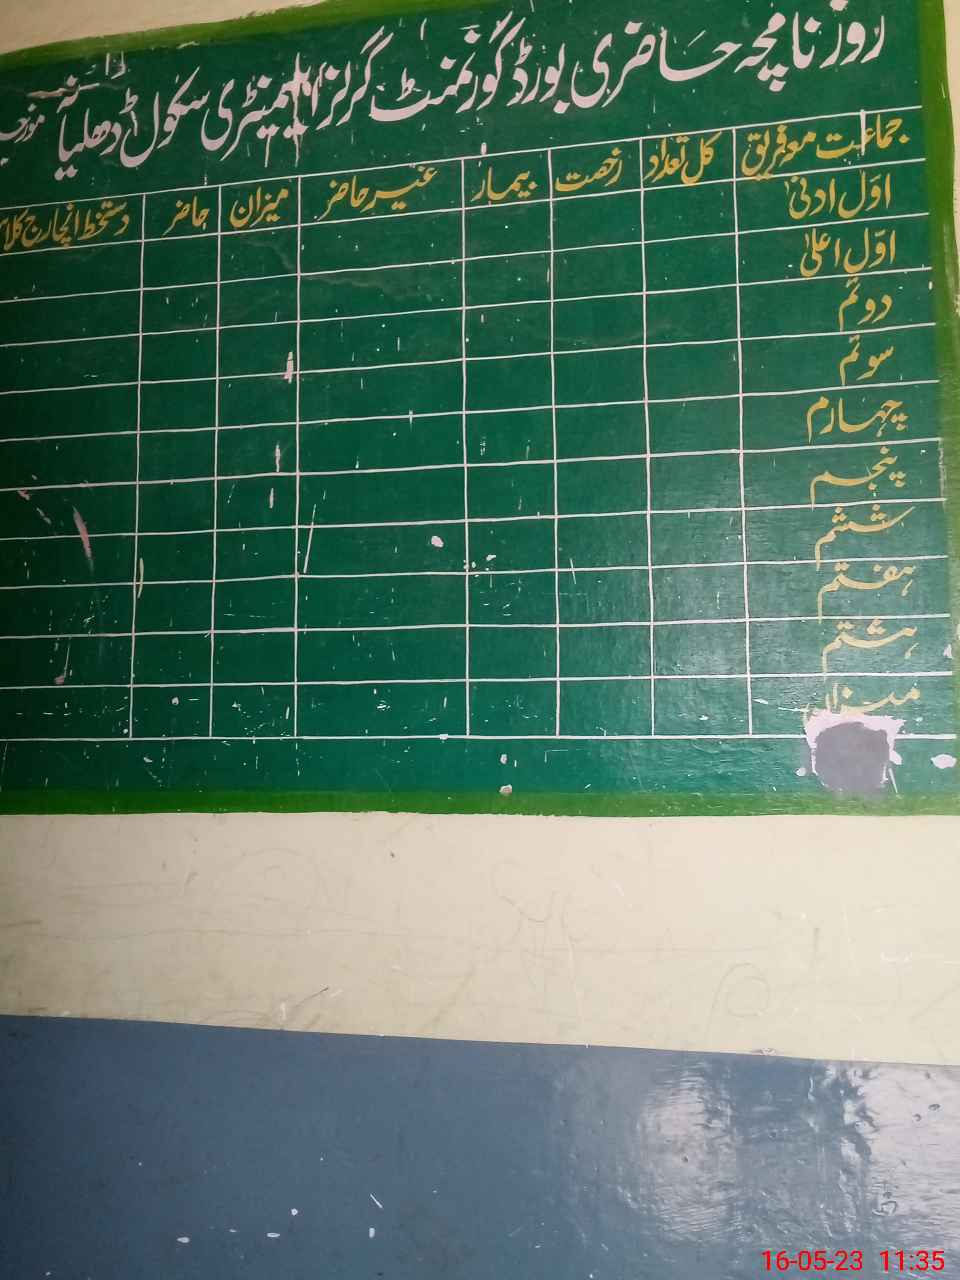 روزنامچہ حاضری بورڈ گورنمنٹ گرلز ایلیمنٹری سکول ڈھلیانہ
جماعت معہ فریق کل تعداد رخصت بیمار غیر حاضر میزان حاضر دستخط انچارج کلاس
اوّل ادنیٰ
اوّل اعلیٰ
دوئم
سوئم
چہارم
پنجم
ششم
ہفتم
ہشتم
میزان
16-05-23 11:35